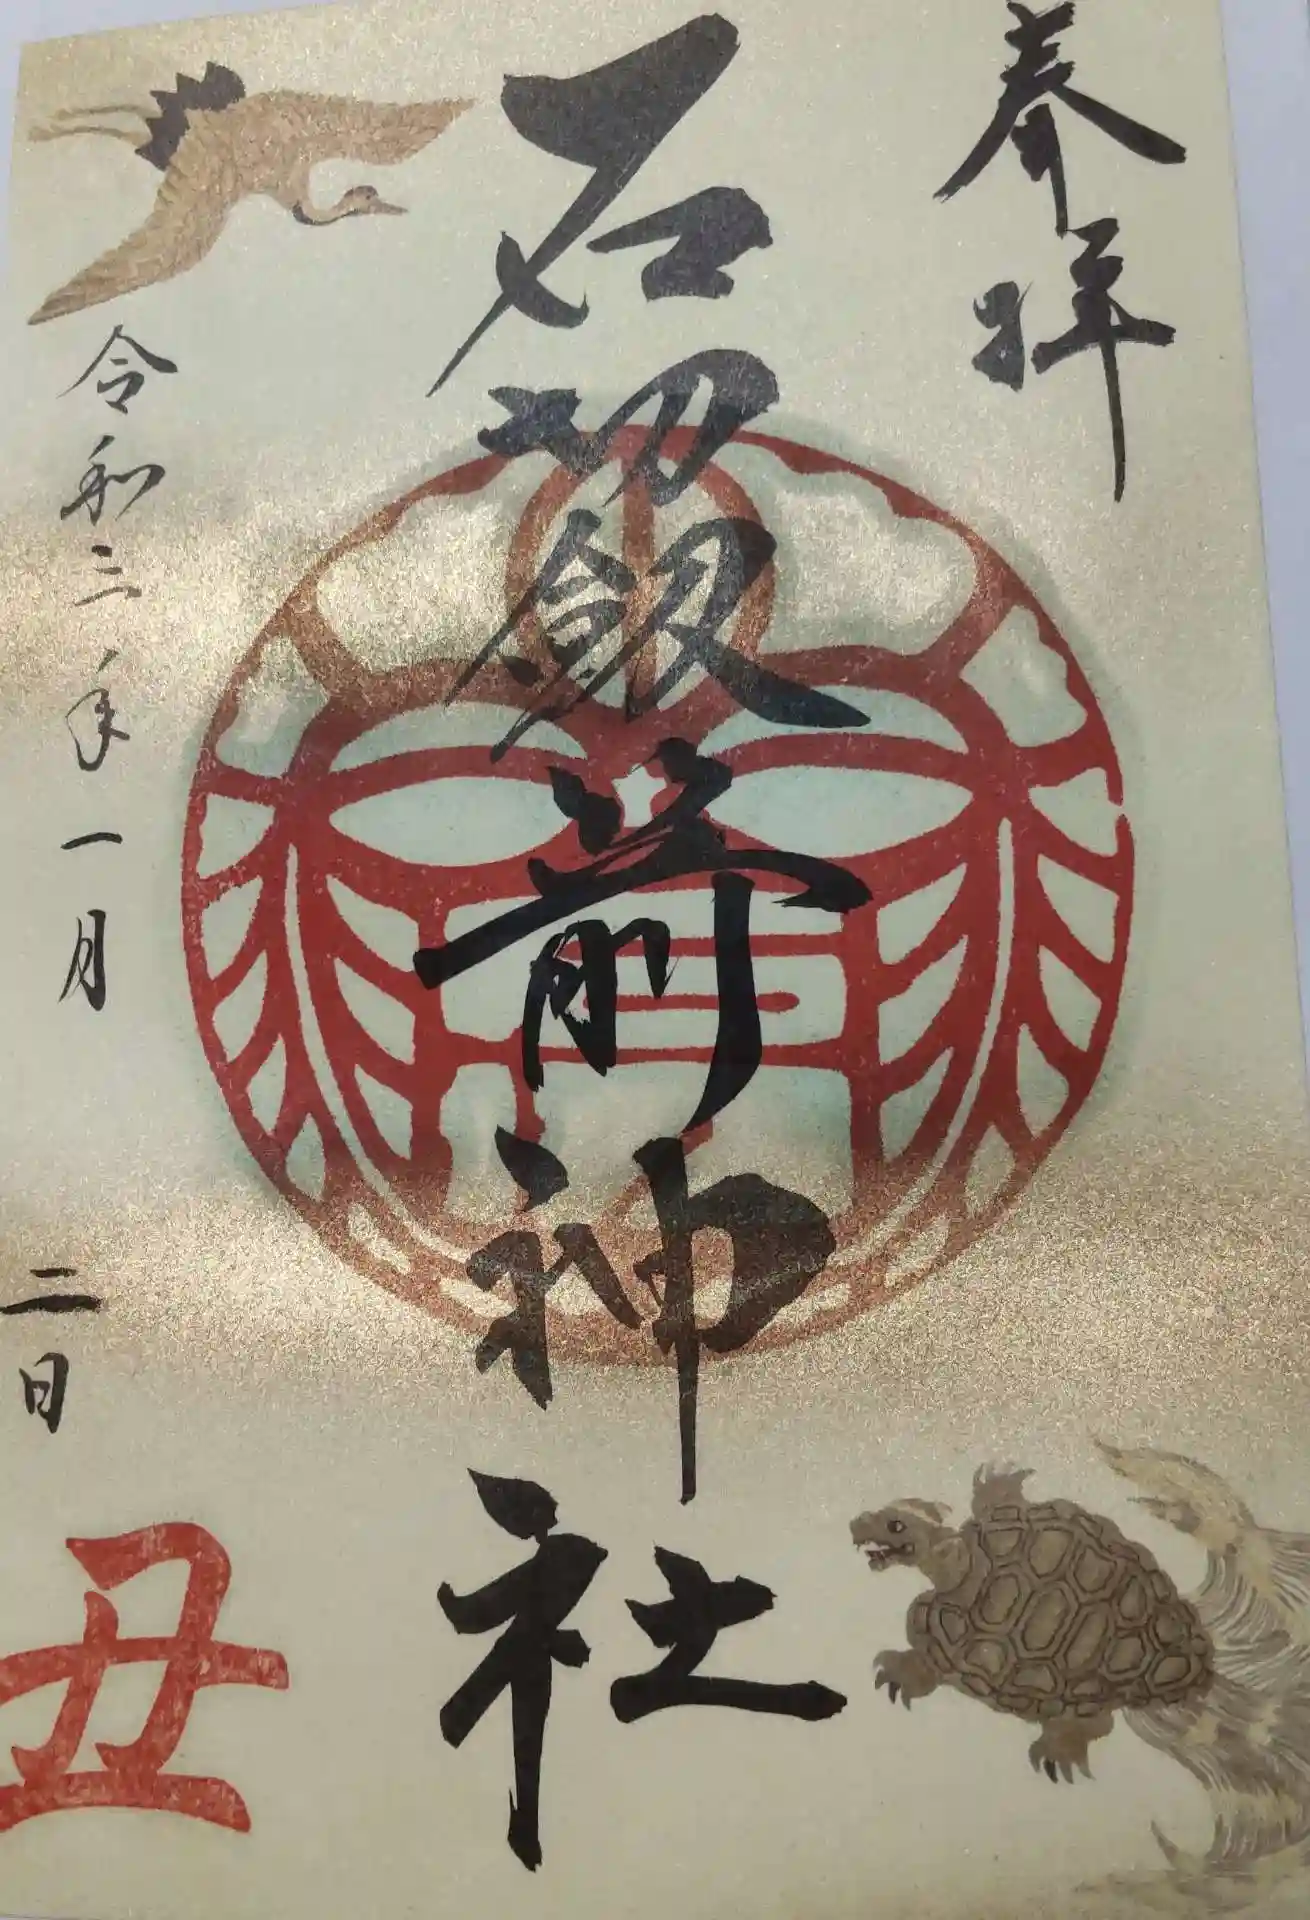 奉拝
石切劔箭神社
令和三年一月二日
丑